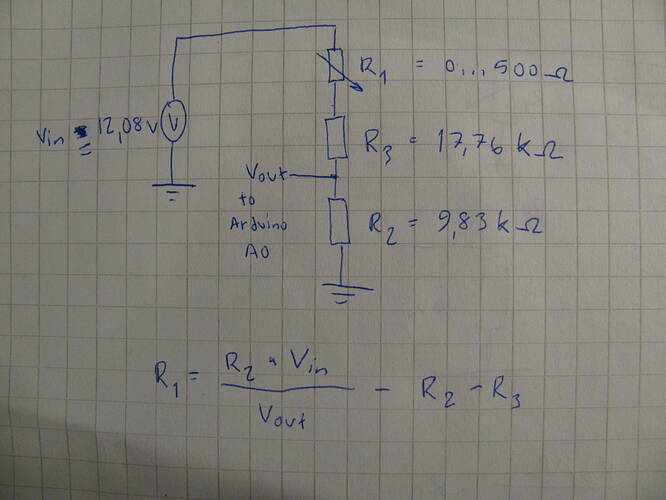 R1 = 0...500 Ω
Vin = 12,08 V
V
R3 = 17,76 k Ω
Vout
to
Arduino
A0
R2 = 9,83 k Ω
R1 = R2 * Vin / Vout - R2 - R3